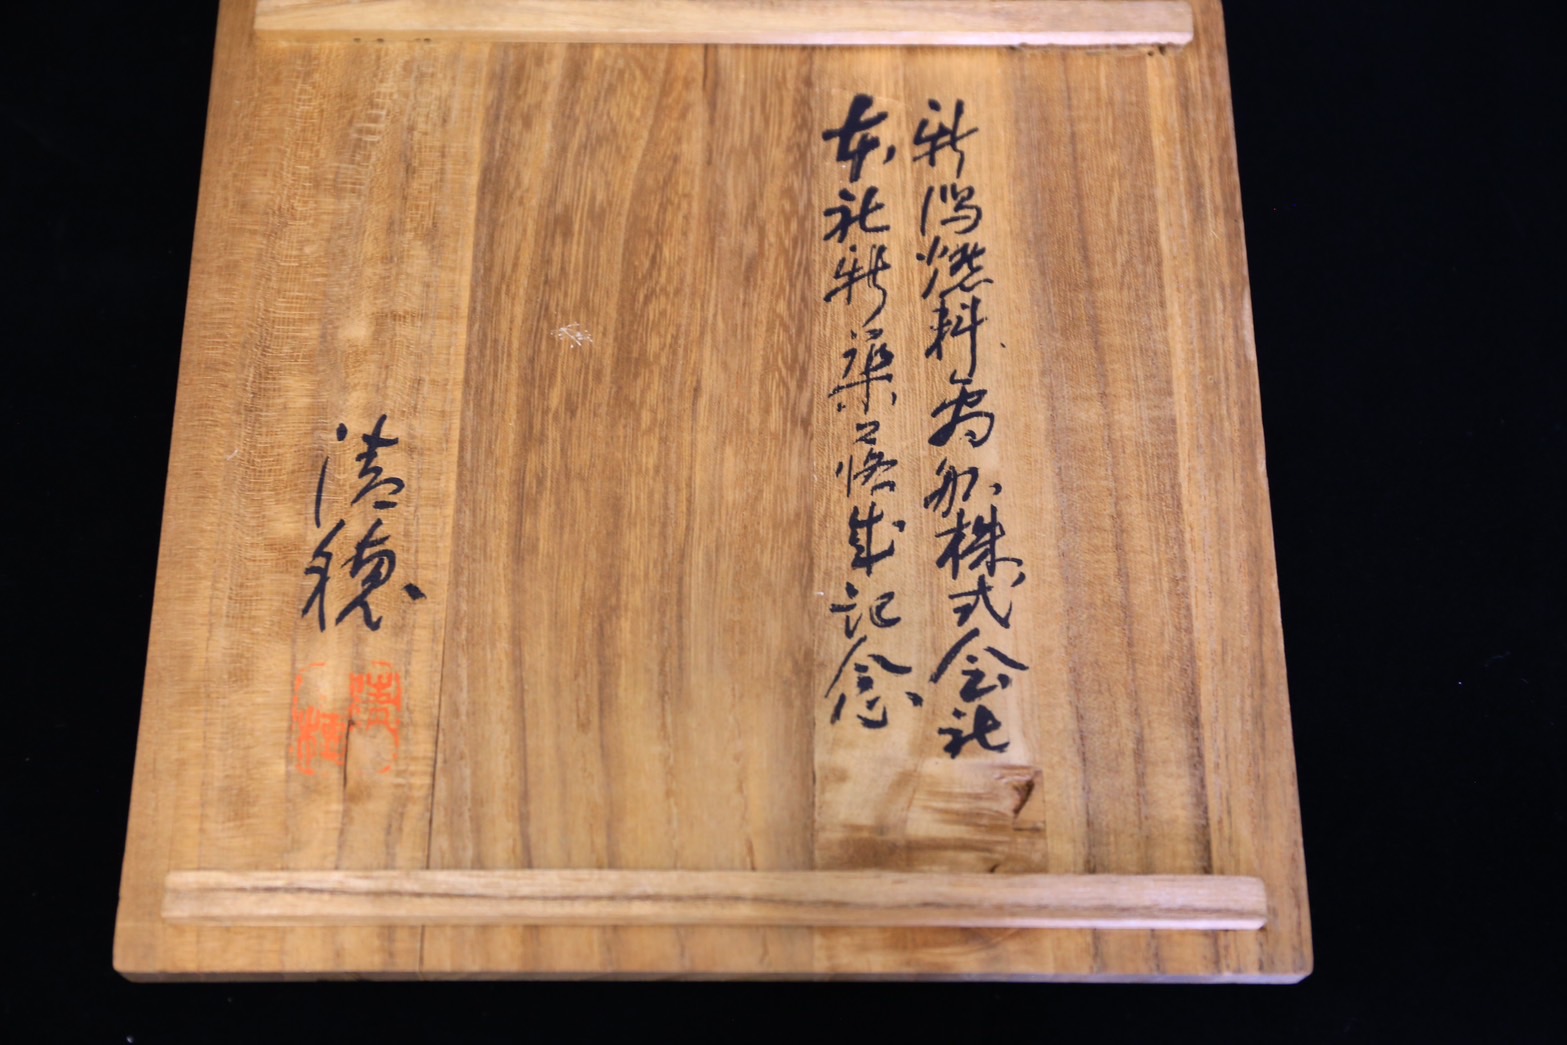 新潟燃料 株式会社
本社新築落成記念
清穂